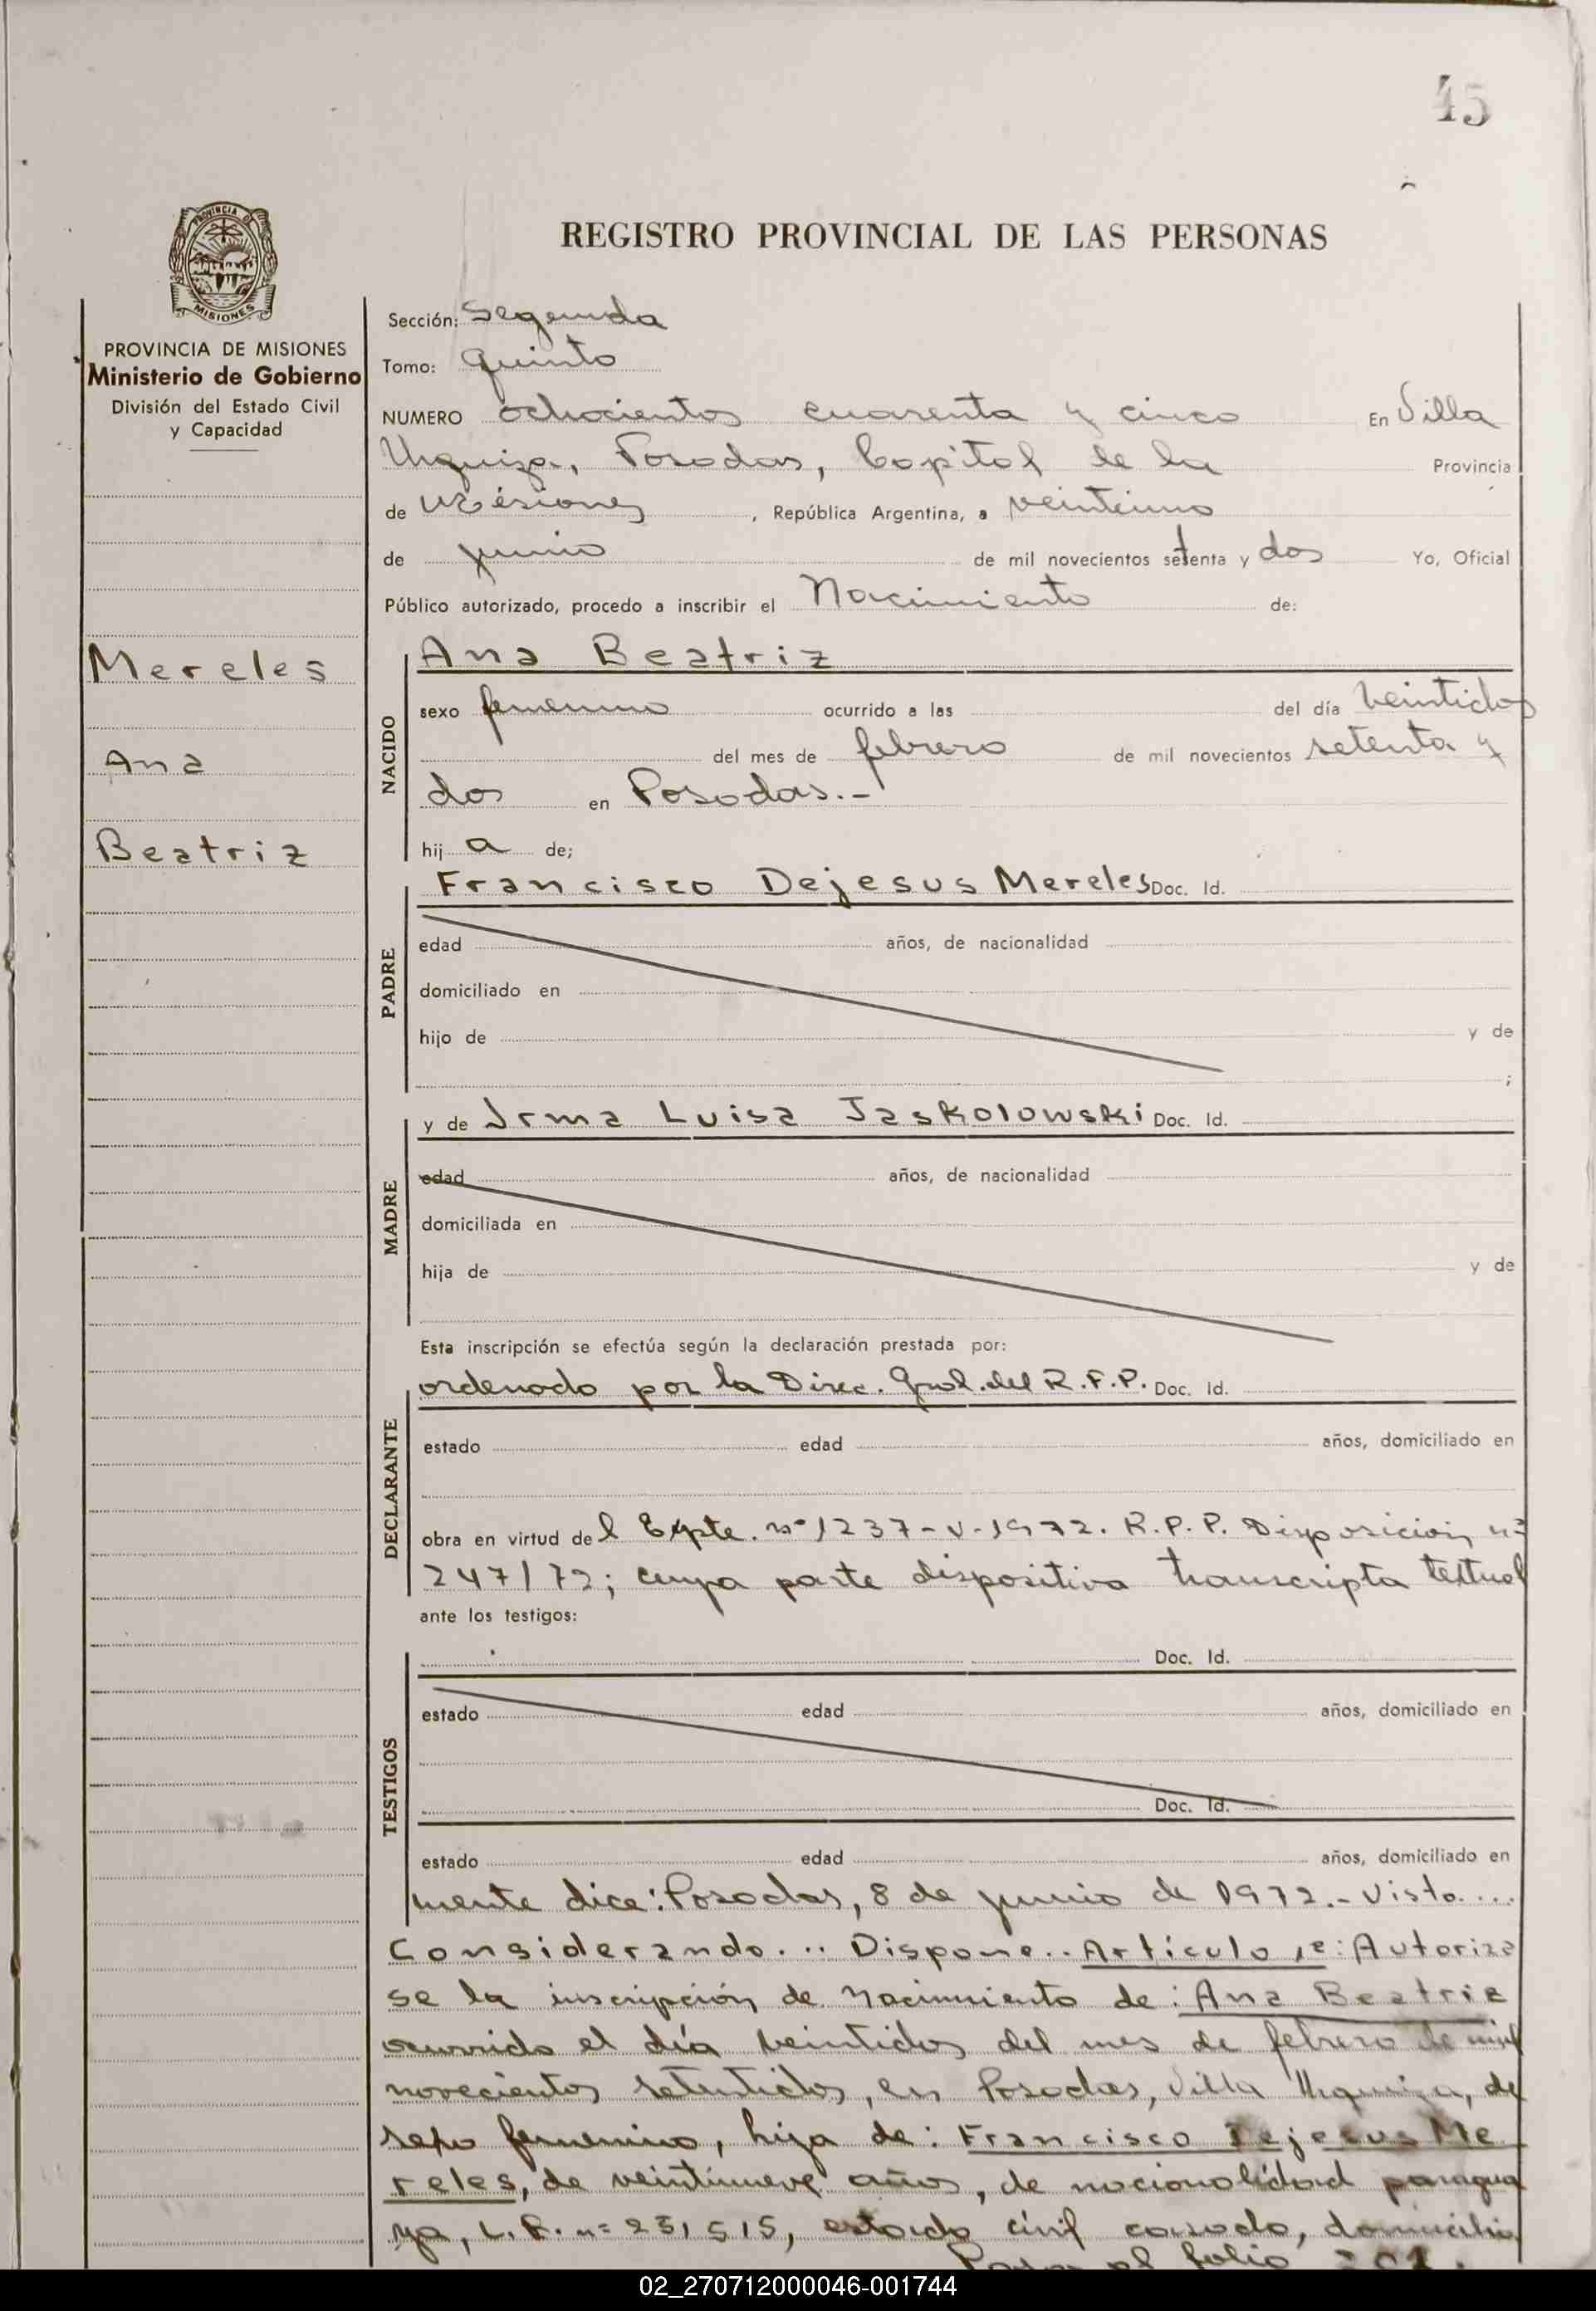 45
PROVINCIA DE
MISIONES
REGISTRO PROVINCIAL DE LAS PERSONAS
PROVINCIA DE MISIONES
Ministerio de Gobierno
División del Estado Civil
y Capacidad
Mereles
Ana
Beatriz
Sección: Segunda
Tomo: quinto
NUMERO ochocientos cuarenta y cinco En Villa
Urquiza, Posadas, Capital de la Provincia
de Misiones, República Argentina, a veintiuno
de junio de mil novecientos setenta y dos Yo, Oficial
Público autorizado, procedo a inscribir el Nacimiento de:
NACIDO
Ana Beatriz
sexo femenino ocurrido a las del día veintidos
del mes de febrero de mil novecientos setenta y
dos en Posadas.-
hij a de;
PADRE
Francisco Dejesus Mereles Doc. Id.
edad años, de nacionalidad
domiciliado en
hijo de y de
;
MADRE
y de Irma Luisa Jaskolowski Doc. Id.
edad años, de nacionalidad
domiciliada en
hija de y de
Esta inscripción se efectúa según la declaración prestada por:
DECLARANTE
ordenado por la Direc. Gral. del R.F.P. Doc. Id.
estado edad años, domiciliado en
obra en virtud del Expte. nº 1237-V-1972. R.P.P. Disposición nº
247/72; cuya parte dispositiva transcripta textual
ante los testigos:
TESTIGOS
Doc. Id.
estado edad años, domiciliado en
Doc. Id.
estado edad años, domiciliado en
mente dice: Posadas, 8 de junio de 1972.- Visto....
Considerando... Dispone.. Artículo 1º: Autoriza
se la inscripción de nacimiento de: Ana Beatriz
ocurrido el día veintidos del mes de febrero de mil
novecientos setentidos, en Posadas, Villa Urquiza, de
sexo femenino, hija de: Francisco Dejesus Me
reles, de veintinueve años, de nacionalidad paragua
ya, L.P. nº 231515, estado civil casado, domicilia
Pasa al folio 201.
02_270712000046-001744